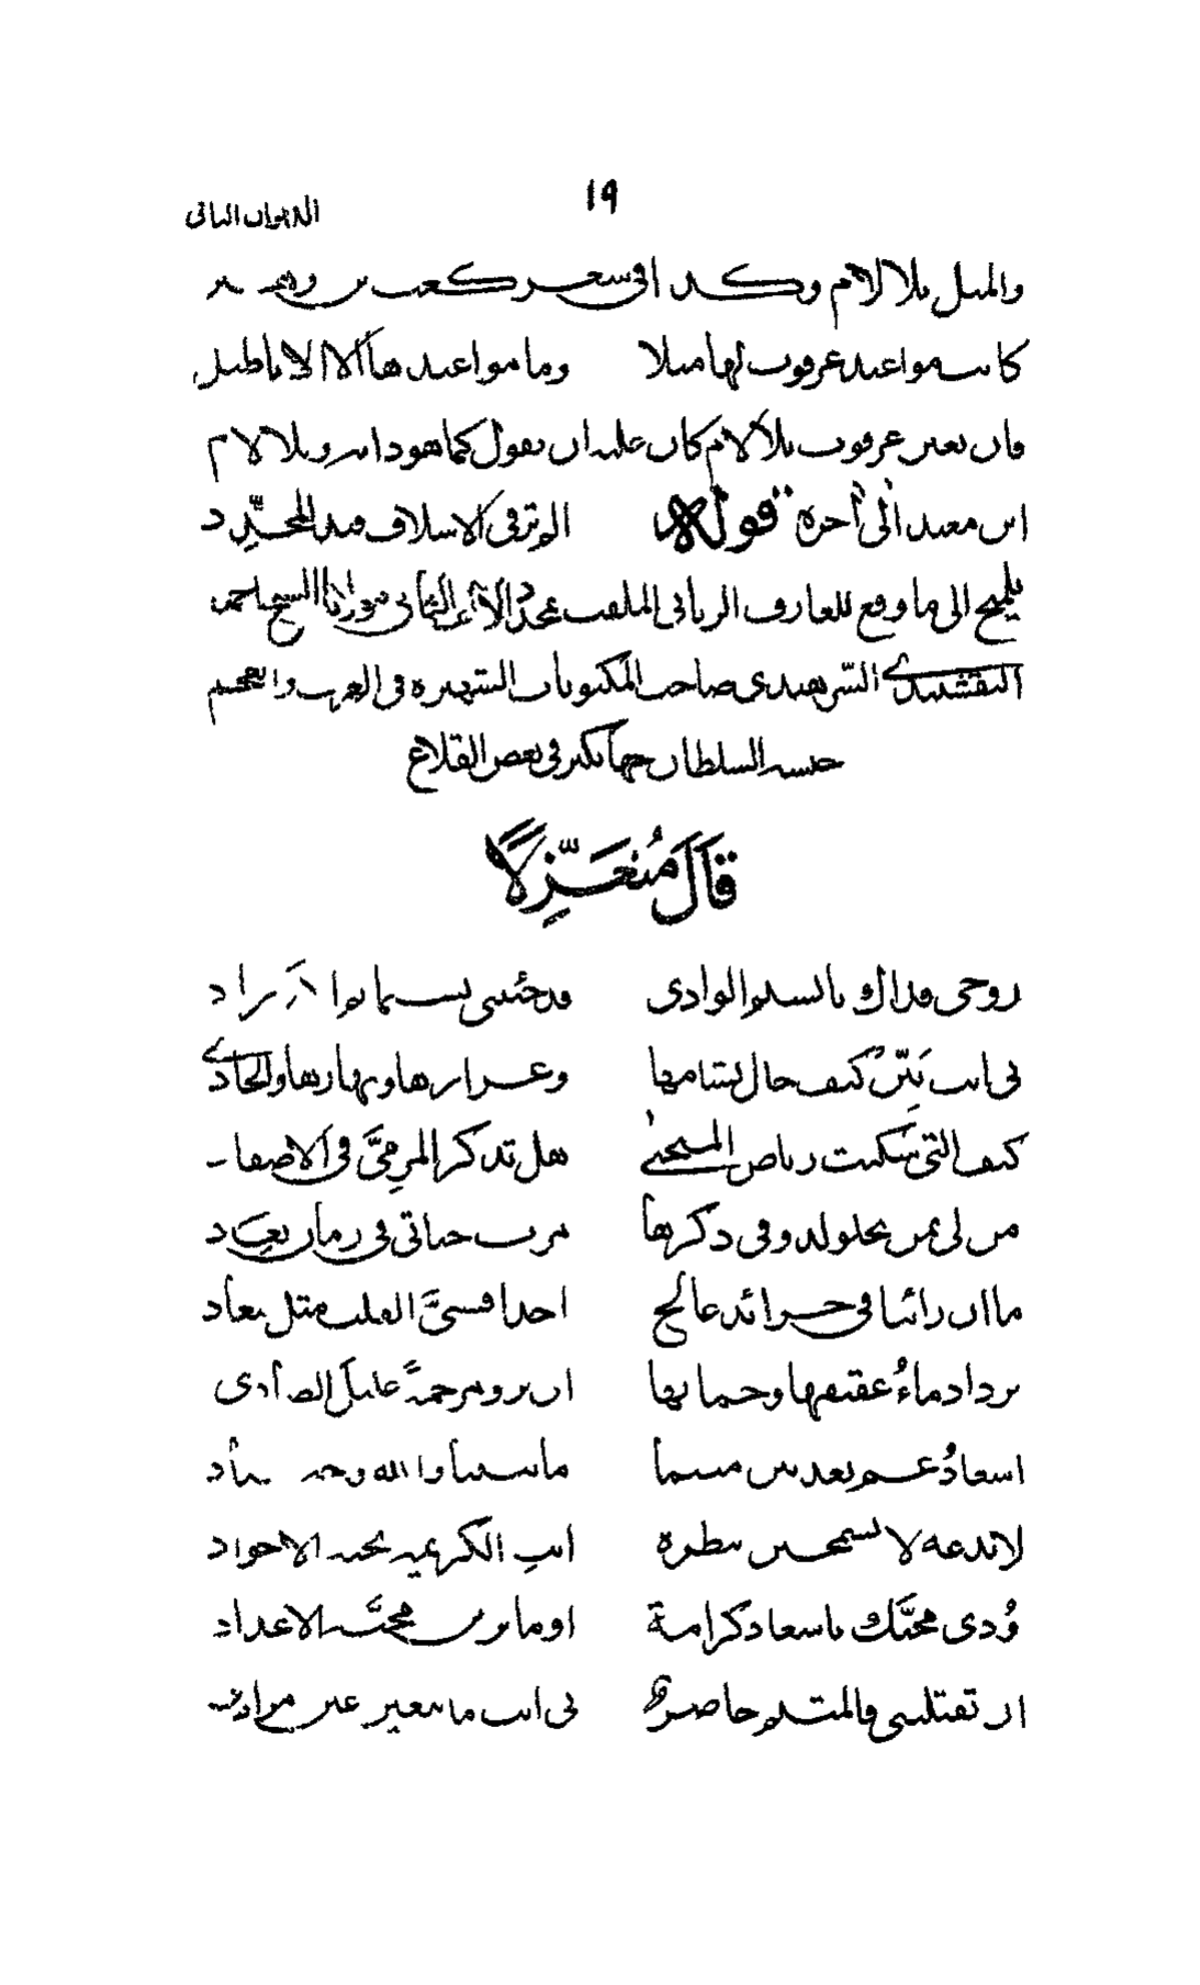 ١٩
الديوان الثاني
والميل بلا لام وكذا في شعر كعب بن زهير
كانت مواعيد عرقوب لها مثلا وما مواعيدها الا الاباطيل
فان تعين عرقوب بلا لام كان عليه ان يقول كما هو دابه وبلا لام
ابن معبد الى آخره قوله الوتر في الاسلاف قيد المجدد
تلميح الى ما وقع للعارف الرباني الملقب بمجدد الالف الثاني مولانا الشيخ احمد
النقشبندي السرهندي صاحب المكتوبات الشهيرة في العرب والعجم
حبسه السلطان جهانكير في بعض القلاع
قَالَ مُتغَزِّلًا
روحي فداك يا نسيم الوادي قد جئتني بسمائم الابراد
بي انت بيّن كيف حال بشامها وعرارها وبهارها والحادي
كيف التي سكنت رياض المنحنى هل تذكر المرميَّ في الاصفاد
من لي بمن تحلو لديه وفي ذكرها مرت حياتي في زمان بعاد
ما ان راينا في خرائد عالج احدا قسيَّ القلب مثل سعاد
يزداد ماءُ عقيقها وجمالها ان يرو مرحمة غليل الصادي
اسعادُ عمر بعد بين مسنا ما سنا والله وجه
لا تدعه لا تسمحين بنظرة انتِ الكريمة بنت الاجواد
وُدي محبَّك يا سعاد كرامة اوما ترين محبَّة الاعداد
ان تقتليني فالمتيم حاضر بي انت ما تبغين غير مرادي